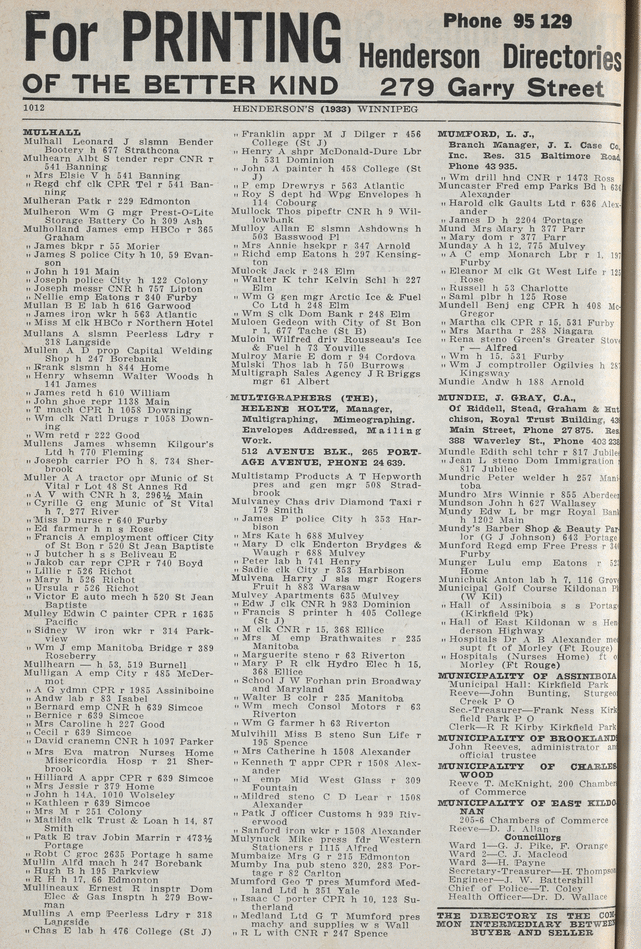 For PRINTING
OF THE BETTER KIND
Phone 95 129
Henderson Directories
279 Garry Street
1012
HENDERSON'S (1933) WINNIPEG
MULHALL
Mulhall Leonard J slsmn Bender
Bootery h 677 Strathcona
Mulhearn Albt S tender repr CNR r
541 Banning
„ Mrs Elsie V h 541 Banning
„ Regd chf clk CPR Tel r 541 Ban-
ning
Mulheran Patk r 229 Edmonton
Mulheron Wm G mgr Prest-O-Lite
Storage Battery Co h 309 Ash
Mulholland James emp HBCo r 365
Graham
„ James bkpr r 55 Morier
„ James S police City h 10, 59 Evan-
son
„ John h 191 Main
„ Joseph police City h 122 Colony
„ Joseph messr CNR h 757 Lipton
„ Nellie emp Eatons r 340 Furby
Mullan B E lab h 616 Garwood
„ James iron wkr h 563 Atlantic
„ Miss M clk HBCo r Northern Hotel
Mullans A slsmn Peerless Ldry r
318 Langside
Mullen A D prop Capital Welding
Shop h 247 Borebank
„ Frank slsmn h 844 Home
„ Henry whsemn Walter Woods h
141 James
„ James retd h 610 William
„ John shoe repr 1138 Main
„ T mach CPR h 1058 Downing
„ Wm clk Natl Drugs r 1058 Down-
ing
„ Wm retd r 222 Good
Mullens James whsemn Kilgour's
Ltd h 770 Fleming
„ Joseph carrier PO h 8, 734 Sher-
brook
Muller A A tractor opr Munic of St
Vital r Lot 48 St Annes Rd
„ A V with CNR h 3, 296½ Main
„ Cyrille G eng Munic of St Vital
h 7, 277 River
„ Miss D nurse r 640 Furby
„ Ed farmer h n s Rose
„ Francis A employment officer City
of St Bon r 520 St Jean Baptiste
„ J butcher h s s Beliveau E
„ Jakob car repr CPR r 740 Boyd
„ Lillie r 526 Richot
„ Mary h 526 Richot
„ Ursula r 526 Richot
„ Victor E auto mech h 520 St Jean
Baptiste
Mulley Edwin C painter CPR r 1635
Pacific
„ Sidney W iron wkr r 314 Park-
view
„ Wm J emp Manitoba Bridge r 389
Roseberry
Mullhearn — h 53, 519 Burnell
Mulligan A emp City r 485 McDer-
mot
„ A G ydmn CPR r 1985 Assiniboine
„ Andw lab r 83 Isabel
„ Bernard emp CNR h 639 Simcoe
„ Bernice r 639 Simcoe
„ Mrs Caroline h 227 Good
„ Cecil r 639 Simcoe
„ David cranemn CNR h 1097 Parker
„ Mrs Eva matron Nurses Home
Misericordia Hosp r 21 Sher-
brook
„ Hilliard A appr CPR r 639 Simcoe
„ Mrs Jessie r 379 Home
„ John h 14A, 1010 Wolseley
„ Kathleen r 639 Simcoe
„ Mrs M r 251 Colony
„ Matilda clk Trust & Loan h 14, 87
Smith
„ Patk E trav Jobin Marrin r 473½
Portage
„ Robt C groc 2635 Portage h same
Mullin Alfd mach h 247 Borebank
„ Hugh B h 195 Parkview
„ R H h 17, 66 Edmonton
Mullineaux Ernest R insptr Dom
Elec & Gas Insptn h 279 Bow-
man
Mullins A emp Peerless Ldry r 318
Langside
„ Chas E lab h 476 College (St J)
„ Franklin appr M J Dilger r 456
College (St J)
„ Henry A shpr McDonald-Dure Lbr
h 531 Dominion
„ John A painter h 458 College (St
J)
„ P emp Drewrys r 563 Atlantic
„ Roy S dept hd Wpg Envelopes h
114 Cobourg
Mullock Thos pipeftr CNR h 9 Wil-
lowbank
Mulloy Allan E slsmn Ashdowns h
503 Basswood Pl
„ Mrs Annie hsekpr r 347 Arnold
„ Richd emp Eatons h 297 Kensing-
ton
Mulock Jack r 248 Elm
„ Walter K tchr Kelvin Schl h 227
Elm
„ Wm G gen mgr Arctic Ice & Fuel
Co Ltd h 248 Elm
„ Wm S clk Dom Bank r 248 Elm
Muloen Gedeon with City of St Bon
r 1, 677 Tache (St B)
Muloin Wilfred driv Rousseau's Ice
& Fuel h 73 Youville
Mulroy Marie E dom r 94 Cordova
Mulski Thos lab h 750 Burrows
Multigraph Sales Agency J R Briggs
mgr 61 Albert
MULTIGRAPHERS (THE),
HELENE HOLTZ, Manager,
Multigraphing, Mimeographing.
Envelopes Addressed, Mailing
Work.
512 AVENUE BLK., 265 PORT-
AGE AVENUE, PHONE 24 639.
Multistamp Products A T Hepworth
pres and gen mgr 508 Strad-
brook
Mulvaney Chas driv Diamond Taxi r
179 Smith
„ James P police City h 353 Har-
bison
„ Mrs Kate h 688 Mulvey
„ Mary D clk Enderton Brydges &
Waugh r 688 Mulvey
„ Peter lab h 741 Henry
„ Sadie clk City r 353 Harbison
Mulvena Harry J sls mgr Rogers
Fruit h 883 Warsaw
Mulvey Apartments 635 Mulvey
„ Edw J clk CNR h 983 Dominion
„ Francis S printer h 405 College
(St J)
„ M clk CNR r 15, 368 Ellice
„ Mrs M emp Brathwaites r 235
Manitoba
„ Marguerite steno r 63 Riverton
„ Mary P R clk Hydro Elec h 15,
368 Ellice
„ School J W Forhan prin Broadway
and Maryland
„ Walter B colr r 235 Manitoba
„ Wm mech Consol Motors r 63
Riverton
„ Wm G farmer h 63 Riverton
Mulvihill Miss B steno Sun Life r
195 Spence
„ Mrs Catherine h 1508 Alexander
„ Kenneth T appr CPR r 1508 Alex-
ander
„ M emp Mid West Glass r 309
Fountain
„ Mildred steno C D Lear r 1508
Alexander
„ Patk J officer Customs h 939 Riv-
erwood
„ Sanford iron wkr r 1508 Alexander
Mulynuck Mike press fdr Western
Stationers r 1115 Alfred
Mumbaize Mrs G r 215 Edmonton
Mumby Ina pub steno 320, 283 Por-
tage r 82 Carlton
Mumford Geo T pres Mumford Med-
land Ltd h 351 Yale
„ Isaac C porter CPR h 10, 123 Su-
therland
„ Medland Ltd G T Mumford pres
machy and supplies w s Wall
„ R L with CNR r 247 Spence
MUMFORD, L. J.,
Branch Manager, J. I. Case Co,
Inc. Res. 315 Baltimore Road,
Phone 43 935.
„ Wm drill hnd CNR r 1473 Ross
Muncaster Fred emp Parks Bd h 636
Alexander
„ Harold clk Gaults Ltd r 636 Alex-
ander
„ James D h 2204 Portage
Mund Mrs Mary h 377 Parr
„ Mary dom r 377 Parr
Munday A h 12, 775 Mulvey
„ A C emp Monarch Lbr r 1, 197
Furby
„ Eleanor M clk Gt West Life r 125
Rose
„ Russell h 53 Charlotte
„ Saml plbr h 125 Rose
Mundell Benj eng CPR h 408 Mc-
Gregor
„ Martha clk CPR r 15, 531 Furby
„ Mrs Martha r 288 Niagara
„ Rena steno Green's Greater Stove
r — Alfred
„ Wm h 15, 531 Furby
„ Wm J comptroller Ogilvies h 287
Kingsway
Mundie Andw h 188 Arnold
MUNDIE, J. GRAY, C.A.,
Of Riddell, Stead, Graham & Hut
chison, Royal Trust Building, 43
Main Street, Phone 27 875. Res.
388 Waverley St., Phone 403 238
Mundle Edith schl tchr r 817 Jubilee
„ Jean L steno Dom Immigration r
817 Jubilee
Mundric Peter welder h 257 Mani-
toba
Mundro Mrs Winnie r 855 Aberdeen
Mundson John h 627 Wallasey
Mundy Edw L br mgr Royal Bank
h 1202 Main
Mundy's Barber Shop & Beauty Par-
lor (G J Johnson) 643 Portage
Munford Regd emp Free Press r
Furby
Munger Lulu emp Eatons r
Home
Munichuk Anton lab h 7, 116 Grove
Municipal Golf Course Kildonan P
(W Kil)
„ Hall of Assiniboia s s Portage
(Kirkfield Pk)
„ Hall of East Kildonan w s Hen
derson Highway
„ Hospitals Dr A B Alexander me
supt ft of Morley (Ft Rouge)
„ Hospitals (Nurses Home) ft o
Morley (Ft Rouge)
MUNICIPALITY OF ASSINIBOIA
Municipal Hall: Kirkfield Park
Reeve—John Bunting, Sturgeon
Creek P O
Sec.-Treasurer—Frank Ness Kirk
field Park P O
Clerk—R R Kirby Kirkfield Park
MUNICIPALITY OF BROOKLANDS
John Reeves, administrator and
official trustee
MUNICIPALITY OF CHARLES-
WOOD
Reeve T. McKnight, 200 Chamber
of Commerce
MUNICIPALITY OF EAST KILDO-
NAN
205-6 Chambers of Commerce
Reeve—D. J. Allan
Councillors
Ward 1—G. J. Pike, F. Orange
Ward 2—C. J. Macleod
Ward 3—H. Payne
Secretary-Treasurer—H. Thompson
Engineer—J. W. Battershill
Chief of Police—T. Coley
Health Officer—Dr. D. Wallace
THE DIRECTORY IS THE COM-
MON INTERMEDIARY BETWEEN
BUYER AND SELLER